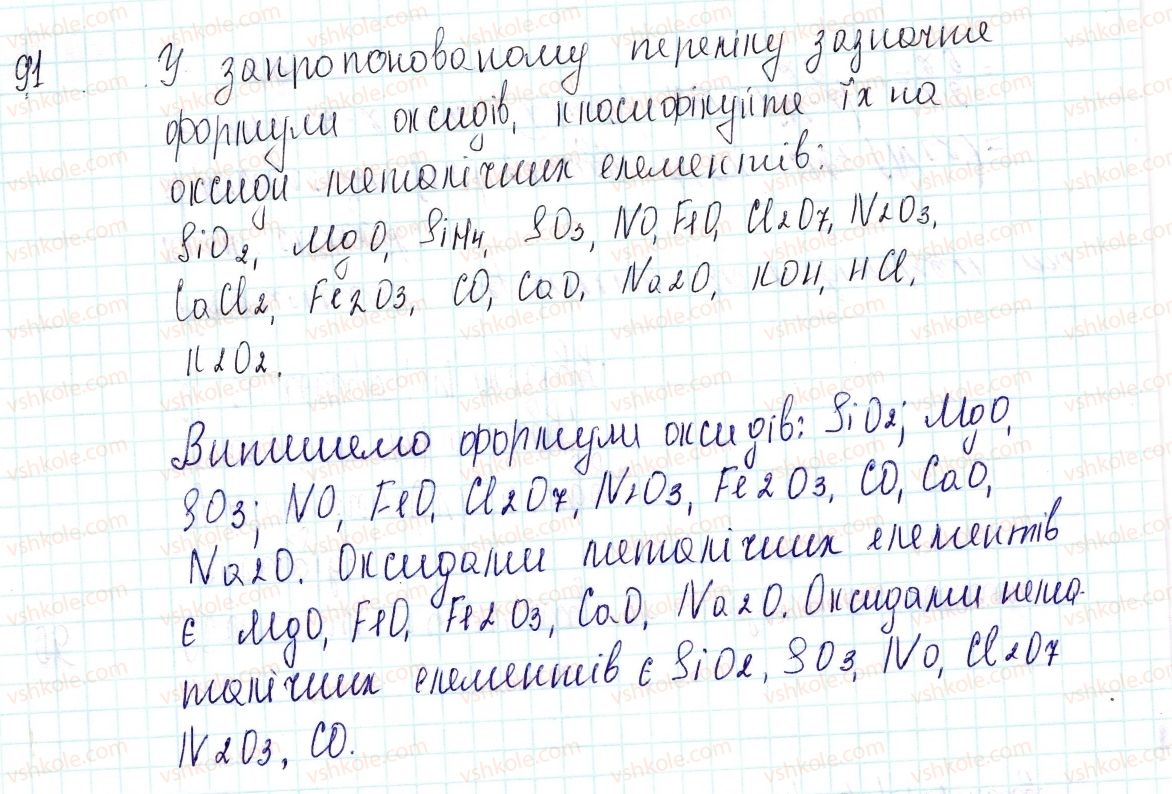 91 У запропонованому переліку зазначте
формули оксидів, класифікуйте їх на
оксиди металічних елементів:
SiO2, MgO, SiH4, SO3, NO, FeO, Cl2O7, N2O3,
CaCl2, Fe2O3, CO, CaO, Na2O, KOH, HCl,
K2O2.
Випишемо формули оксидів: SiO2; MgO,
SO3; NO, FeO, Cl2O7, N2O3, Fe2O3, CO, CaO,
Na2O. Оксидами металічних елементів
є MgO, FeO, Fe2O3, CaO, Na2O. Оксидами неме-
талічних елементів є SiO2, SO3, NO, Cl2O7
N2O3, CO.